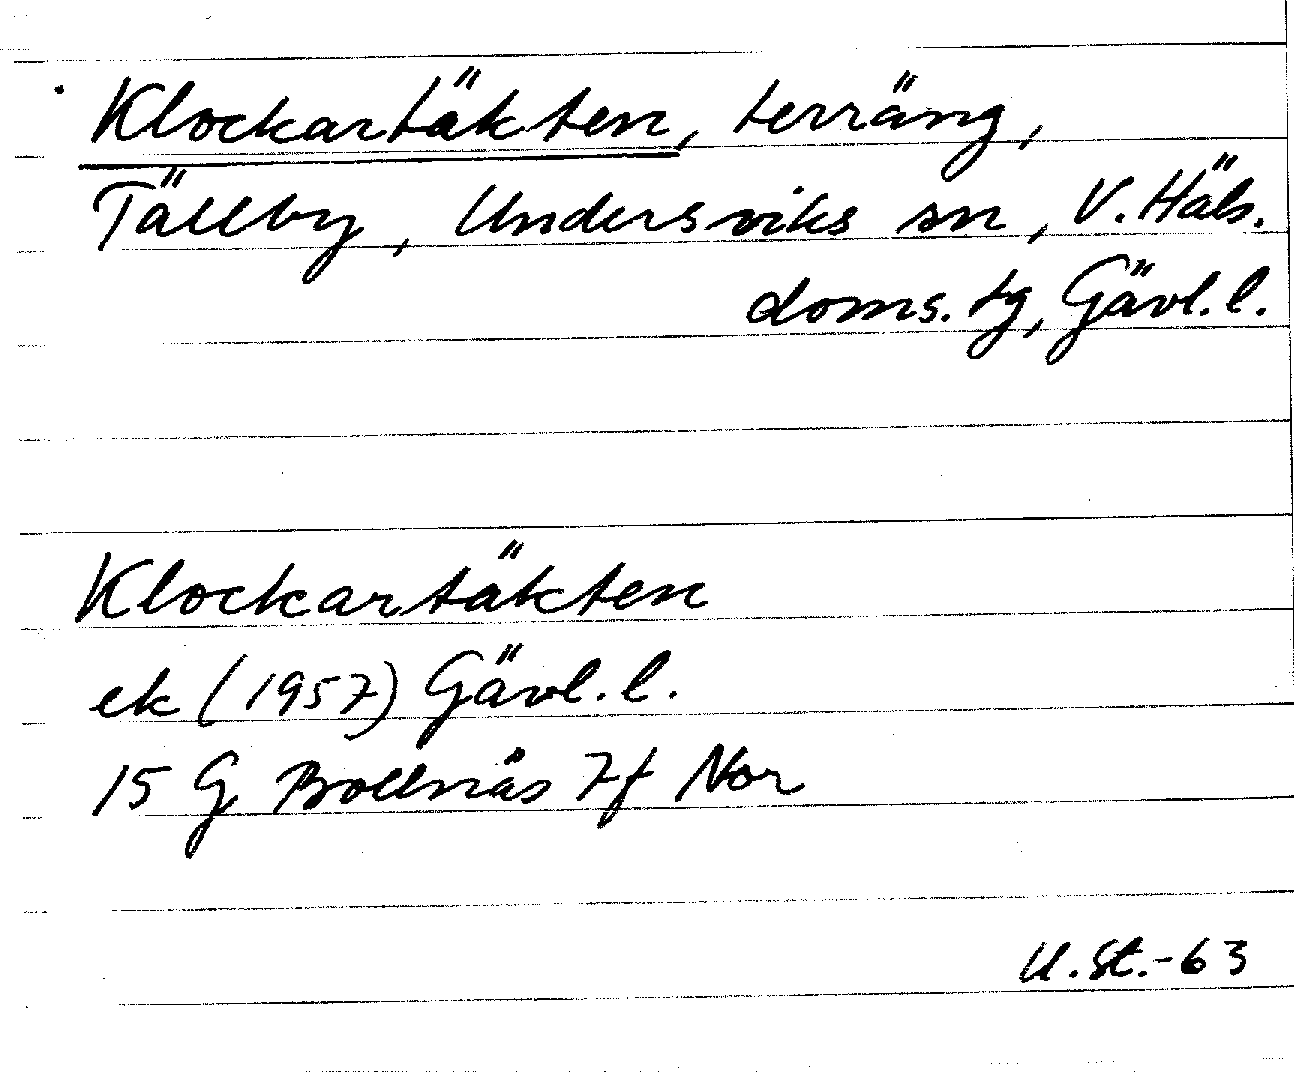 Klockartäkten, terräng,
Tällby, Undersviks sn, V. Häls.
doms. tg, Gävl. l.
Klockartäkten
ek (1957) Gävl. l.
15 G Bollnäs 7f Nor
U. St. - 63